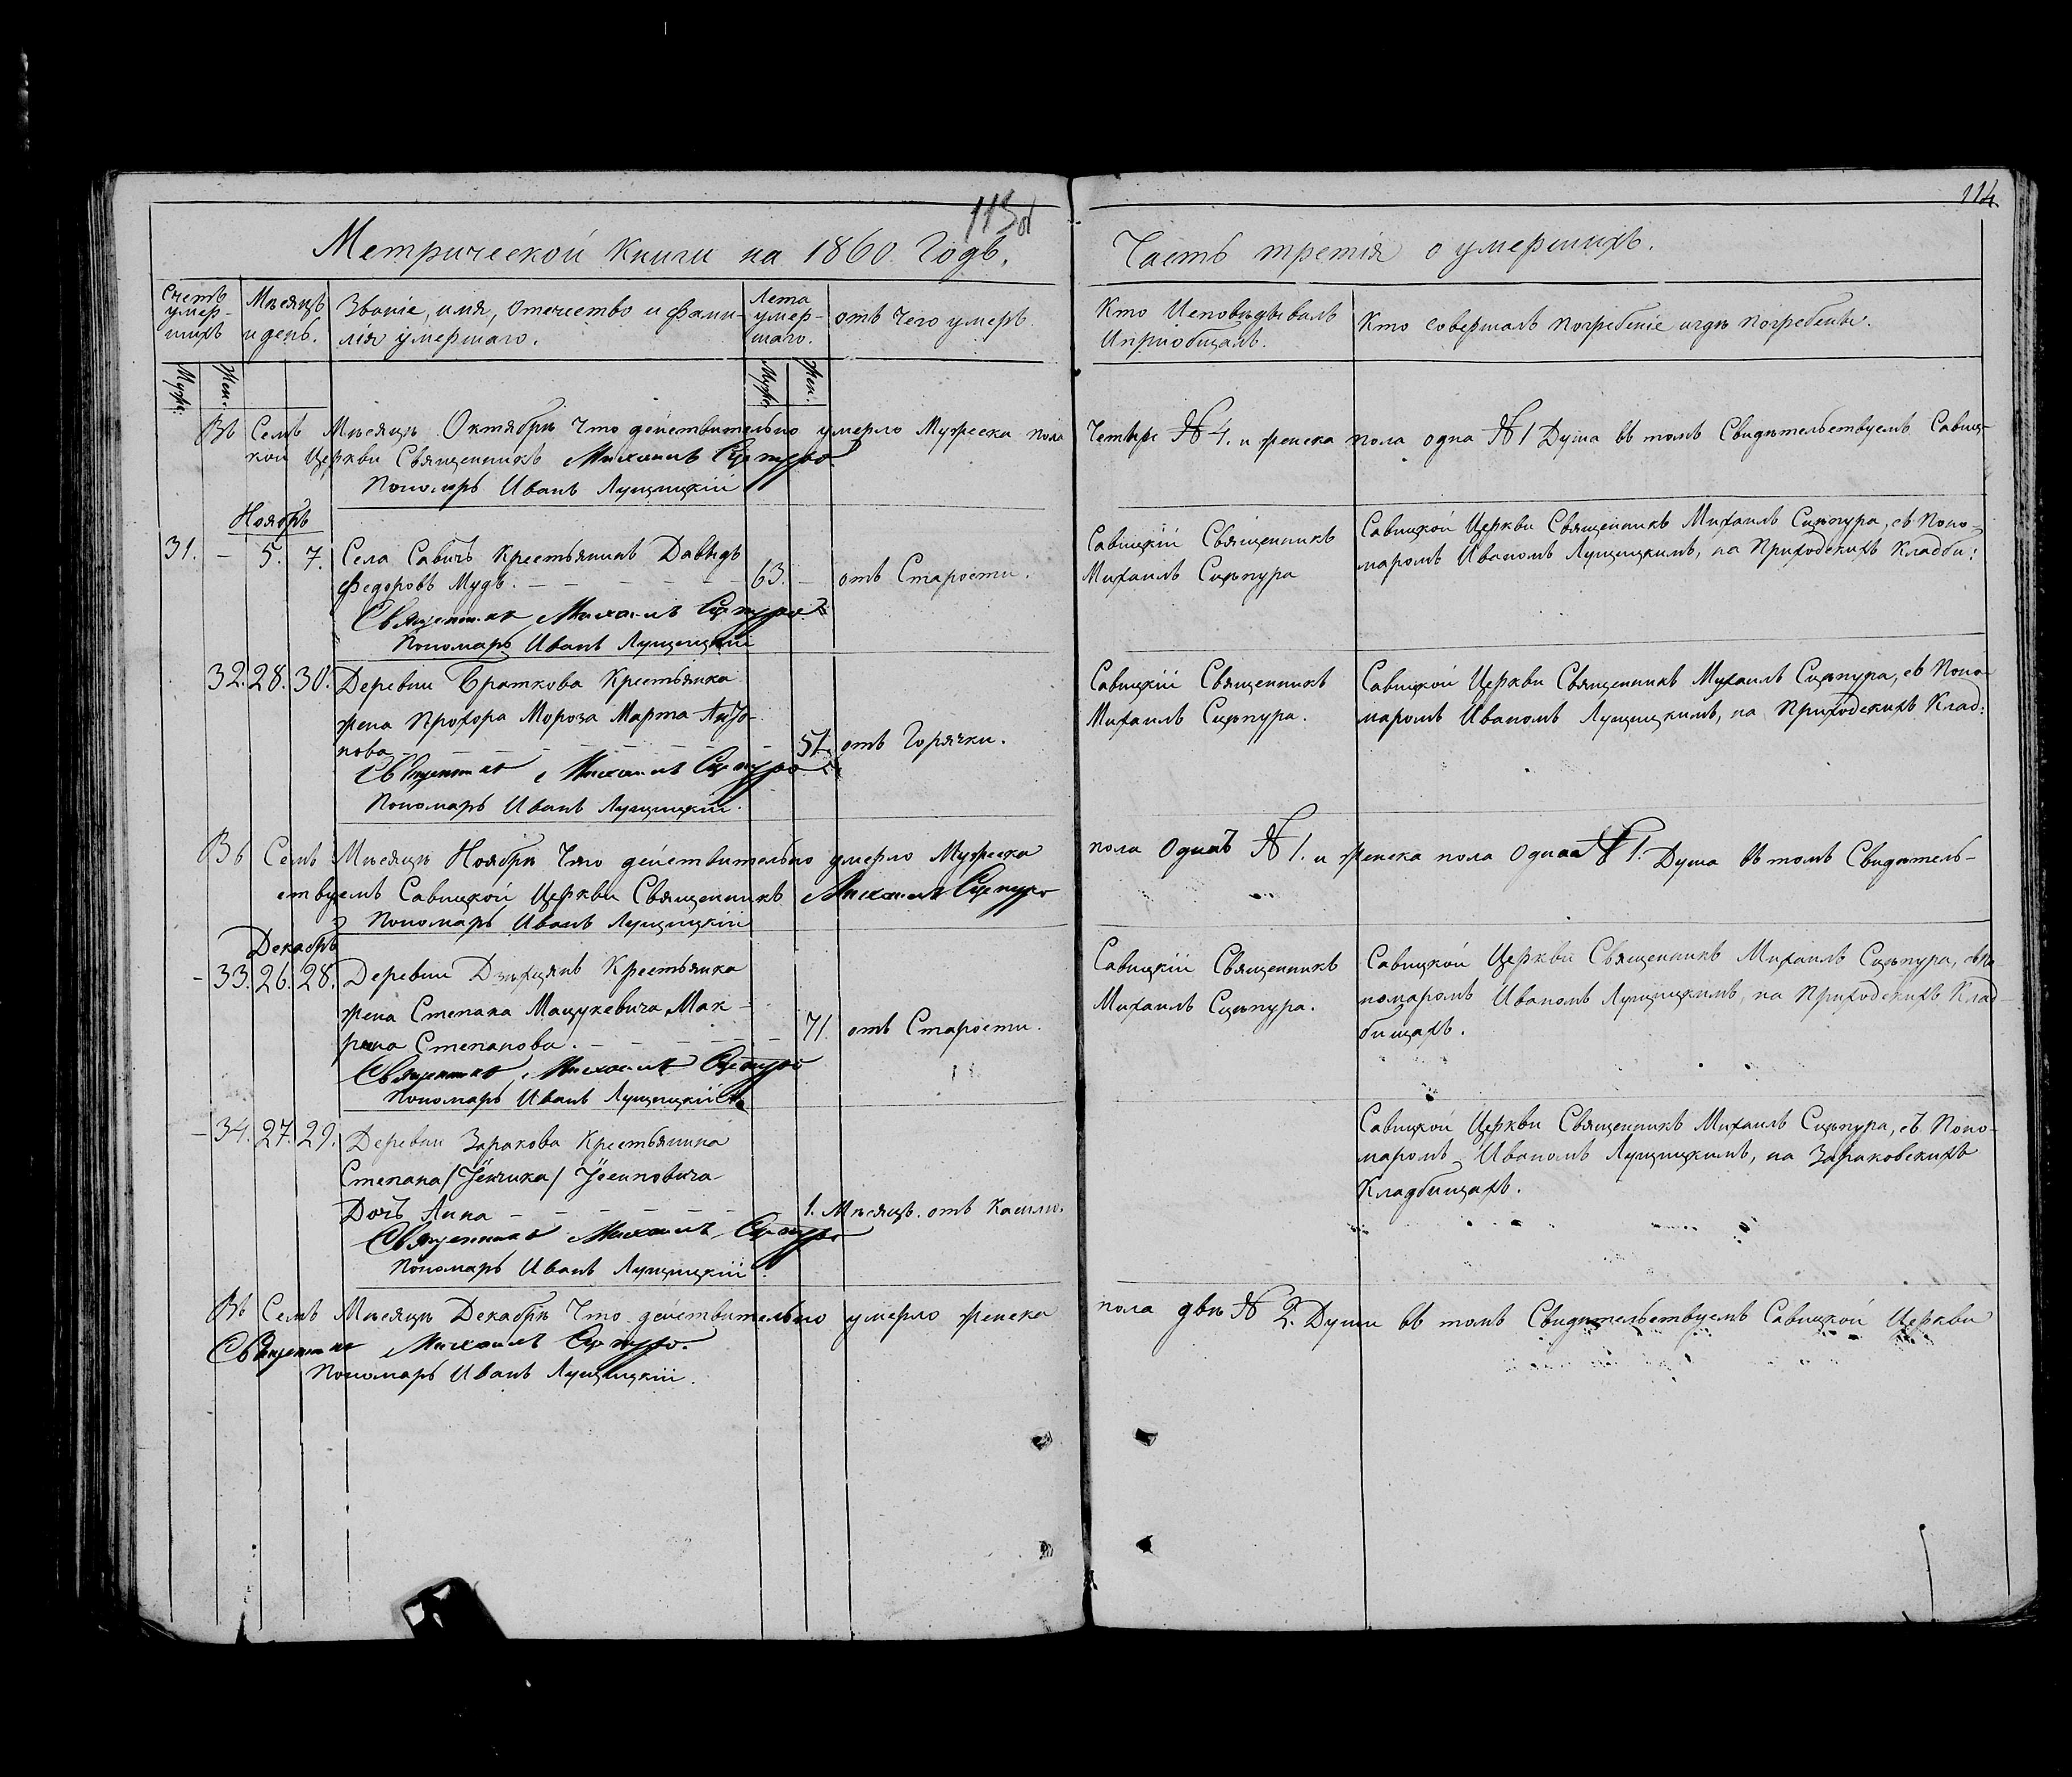 113
114
Метрической книги на 1860 Годъ.
Часть третія о умершихъ.
Счетъ умер-шихъ
Мѣсяцъ и день.
Званіе, имя, отечество и фами-
лія умершаго.
Лета умер-шаго.
отъ Чего умеръ.
Кто Исповѣдывалъ
Ипріобщалъ.
Кто совершалъ погребеніе игдѣ погребены.
Муж:
Жен.
Муж:
Жен.
Въ Семъ Мѣсяцѣ Октябрѣ Что действительно умерло Мужеска пола Четыре № 4. и женска пола одна № 1 Душа въ томъ Свидѣтельствуемъ Савиц-
кой Церкви Священникъ Михаилъ Сцепуро
Пономарь Иванъ Лущицкій
Ноябрь
31. – 5. 7. Села Савичъ Крестьянинъ Давыдъ
Федоровъ Мудъ. – 63. – отъ Старости.
Священникъ Михаилъ Сцепуро
Пономарь Иванъ Лущицкій
Савицкій Священникъ
Михаилъ Сцѣпура
Савицкой Церкви Священникъ Михаилъ Сцѣпура, съ Поно-
маромъ Иваномъ Лущицкимъ, на Приходскихъ Кладби:
32. 28. 30. Деревни Браткова Крестьянка
жена Прохора Мороза Марта Анто-
нова – 51. отъ Горячки.
Священникъ Михаилъ Сцепуро
Пономарь Иванъ Лущицкій.
Савицкій Священникъ
Михаилъ Сцѣпура.
Савицкой Церкви Священникъ Михаилъ Сцѣпура, съ Поно-
маромъ Иваномъ Лущицкимъ, на Приходскихъ Клад:
Въ Семъ Мѣсяцѣ Ноябрѣ Что действительно умерло Мужеска пола Одинъ № 1. и женска пола Одна № 1. Душа въ томъ Свидѣтель-
ствуемъ Савицкой Церкви Священникъ Михаилъ Сцепуро
Пономарь Иванъ Лущицкій
Декабрь
– 33. 26. 28. Деревни Крестьянка
жена Степана Мацукевича Мак-
рина Степанова. – 71. отъ Старости.
Священникъ Михаилъ Сцепуро
Пономарь Иванъ Лущицкій
Савицкій Священникъ
Михаилъ Сцѣпура.
Савицкой Церкви Священникъ Михаилъ Сцѣпура, съ По-
номаромъ Иваномъ Лущицкимъ, на Приходскихъ Клад-
бищахъ.
– 34. 27. 29. Деревни Заракова Крестьянина
Степана
Дочь Анна – 1. Мѣсяцъ. отъ Кашлю.
Священникъ Михаилъ Сцепуро
Пономарь Иванъ Лущицкій.
Савицкой Церкви Священникъ Михаилъ Сцѣпура, съ Поно-
маромъ Иваномъ Лущицкимъ, на Зараковскихъ
Кладбищахъ.
Въ Семъ Мѣсяцѣ Декабрѣ Что действительно умерло женска пола двѣ № 2. Души въ томъ Свидѣтельствуемъ Савицкой Церкви
Священникъ Михаилъ Сцепуро.
Пономарь Иванъ Лущицкій.